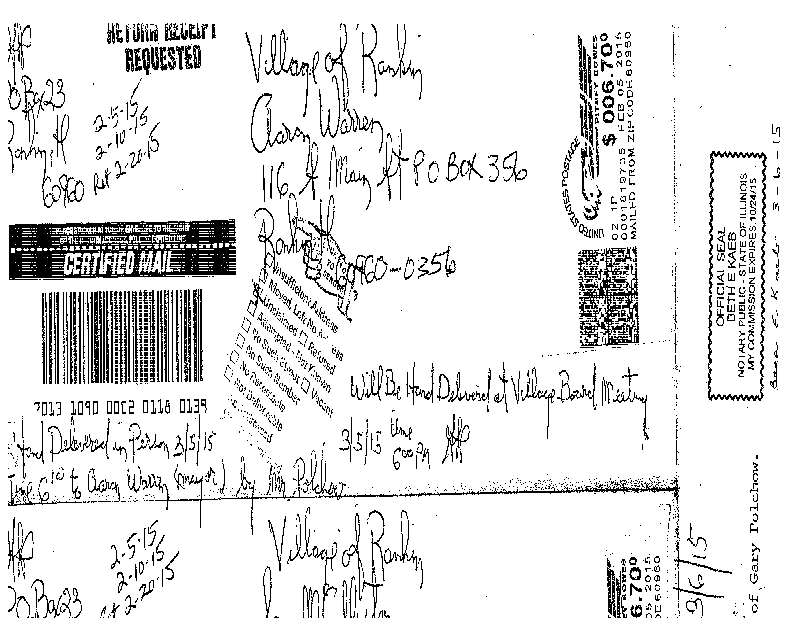 RETURN RECEIPT
REQUESTED
Box 23
60960
2-5-15
2-10-15
Ret 2-20-15
Village of Rankin
Aaron Warren
116 Main PO BOX 356
Rankin 60960-0356
UNITED STATES POSTAGE
PITNEY BOWES
02 1P $ 006.70⁰
0001819735 FEB 05 2015
MAILED FROM ZIP CODE 60960
CERTIFIED MAIL
7013 1090 0002 0118 0139
Insufficient Address
Moved, Left No Address
Unclaimed Refused
Attempted - Not Known
No Such Street Vacant
No Such Number
No Receptacle
Not Deliverable
Will Be Hand Delivered at Village Board Meeting
3/5/15 time
6:00 PM
Hand Delivered in Person 3/5/15
Time 6¹⁰ to Aaron Warren (mayor) by
OFFICIAL SEAL
BETH E KAEB
NOTARY PUBLIC - STATE OF ILLINOIS
MY COMMISSION EXPIRES 10/24/15
3-6-15
2-5-15
2-10-15
Ret 2-20-15
Box 23
Village of Rankin
PITNEY BOWES
6.70⁰
05 2015
DE 60960
3/6/15
of Gary Pulchow.